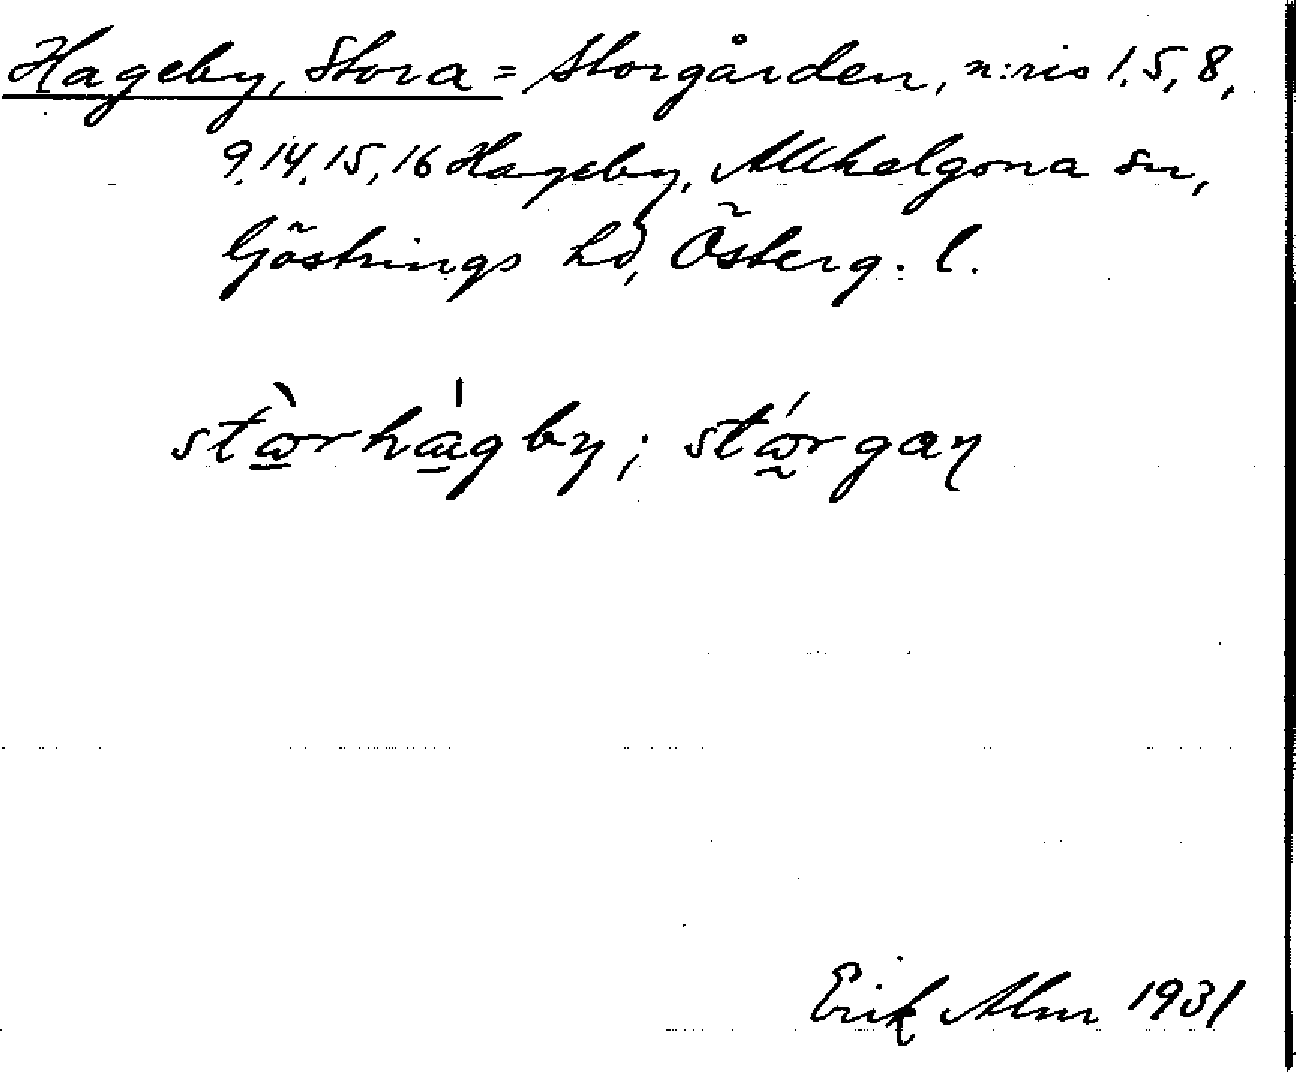 Hageby, Stora = Storgården, n:ris 1, 5, 8,
9, 14, 15, 16 Hageby, Allhelgona sn,
Göstrings hd, Österg. l.
stɷ̀rhɑ́gby; stɷ́rgaɳ
Erik Alm 1931